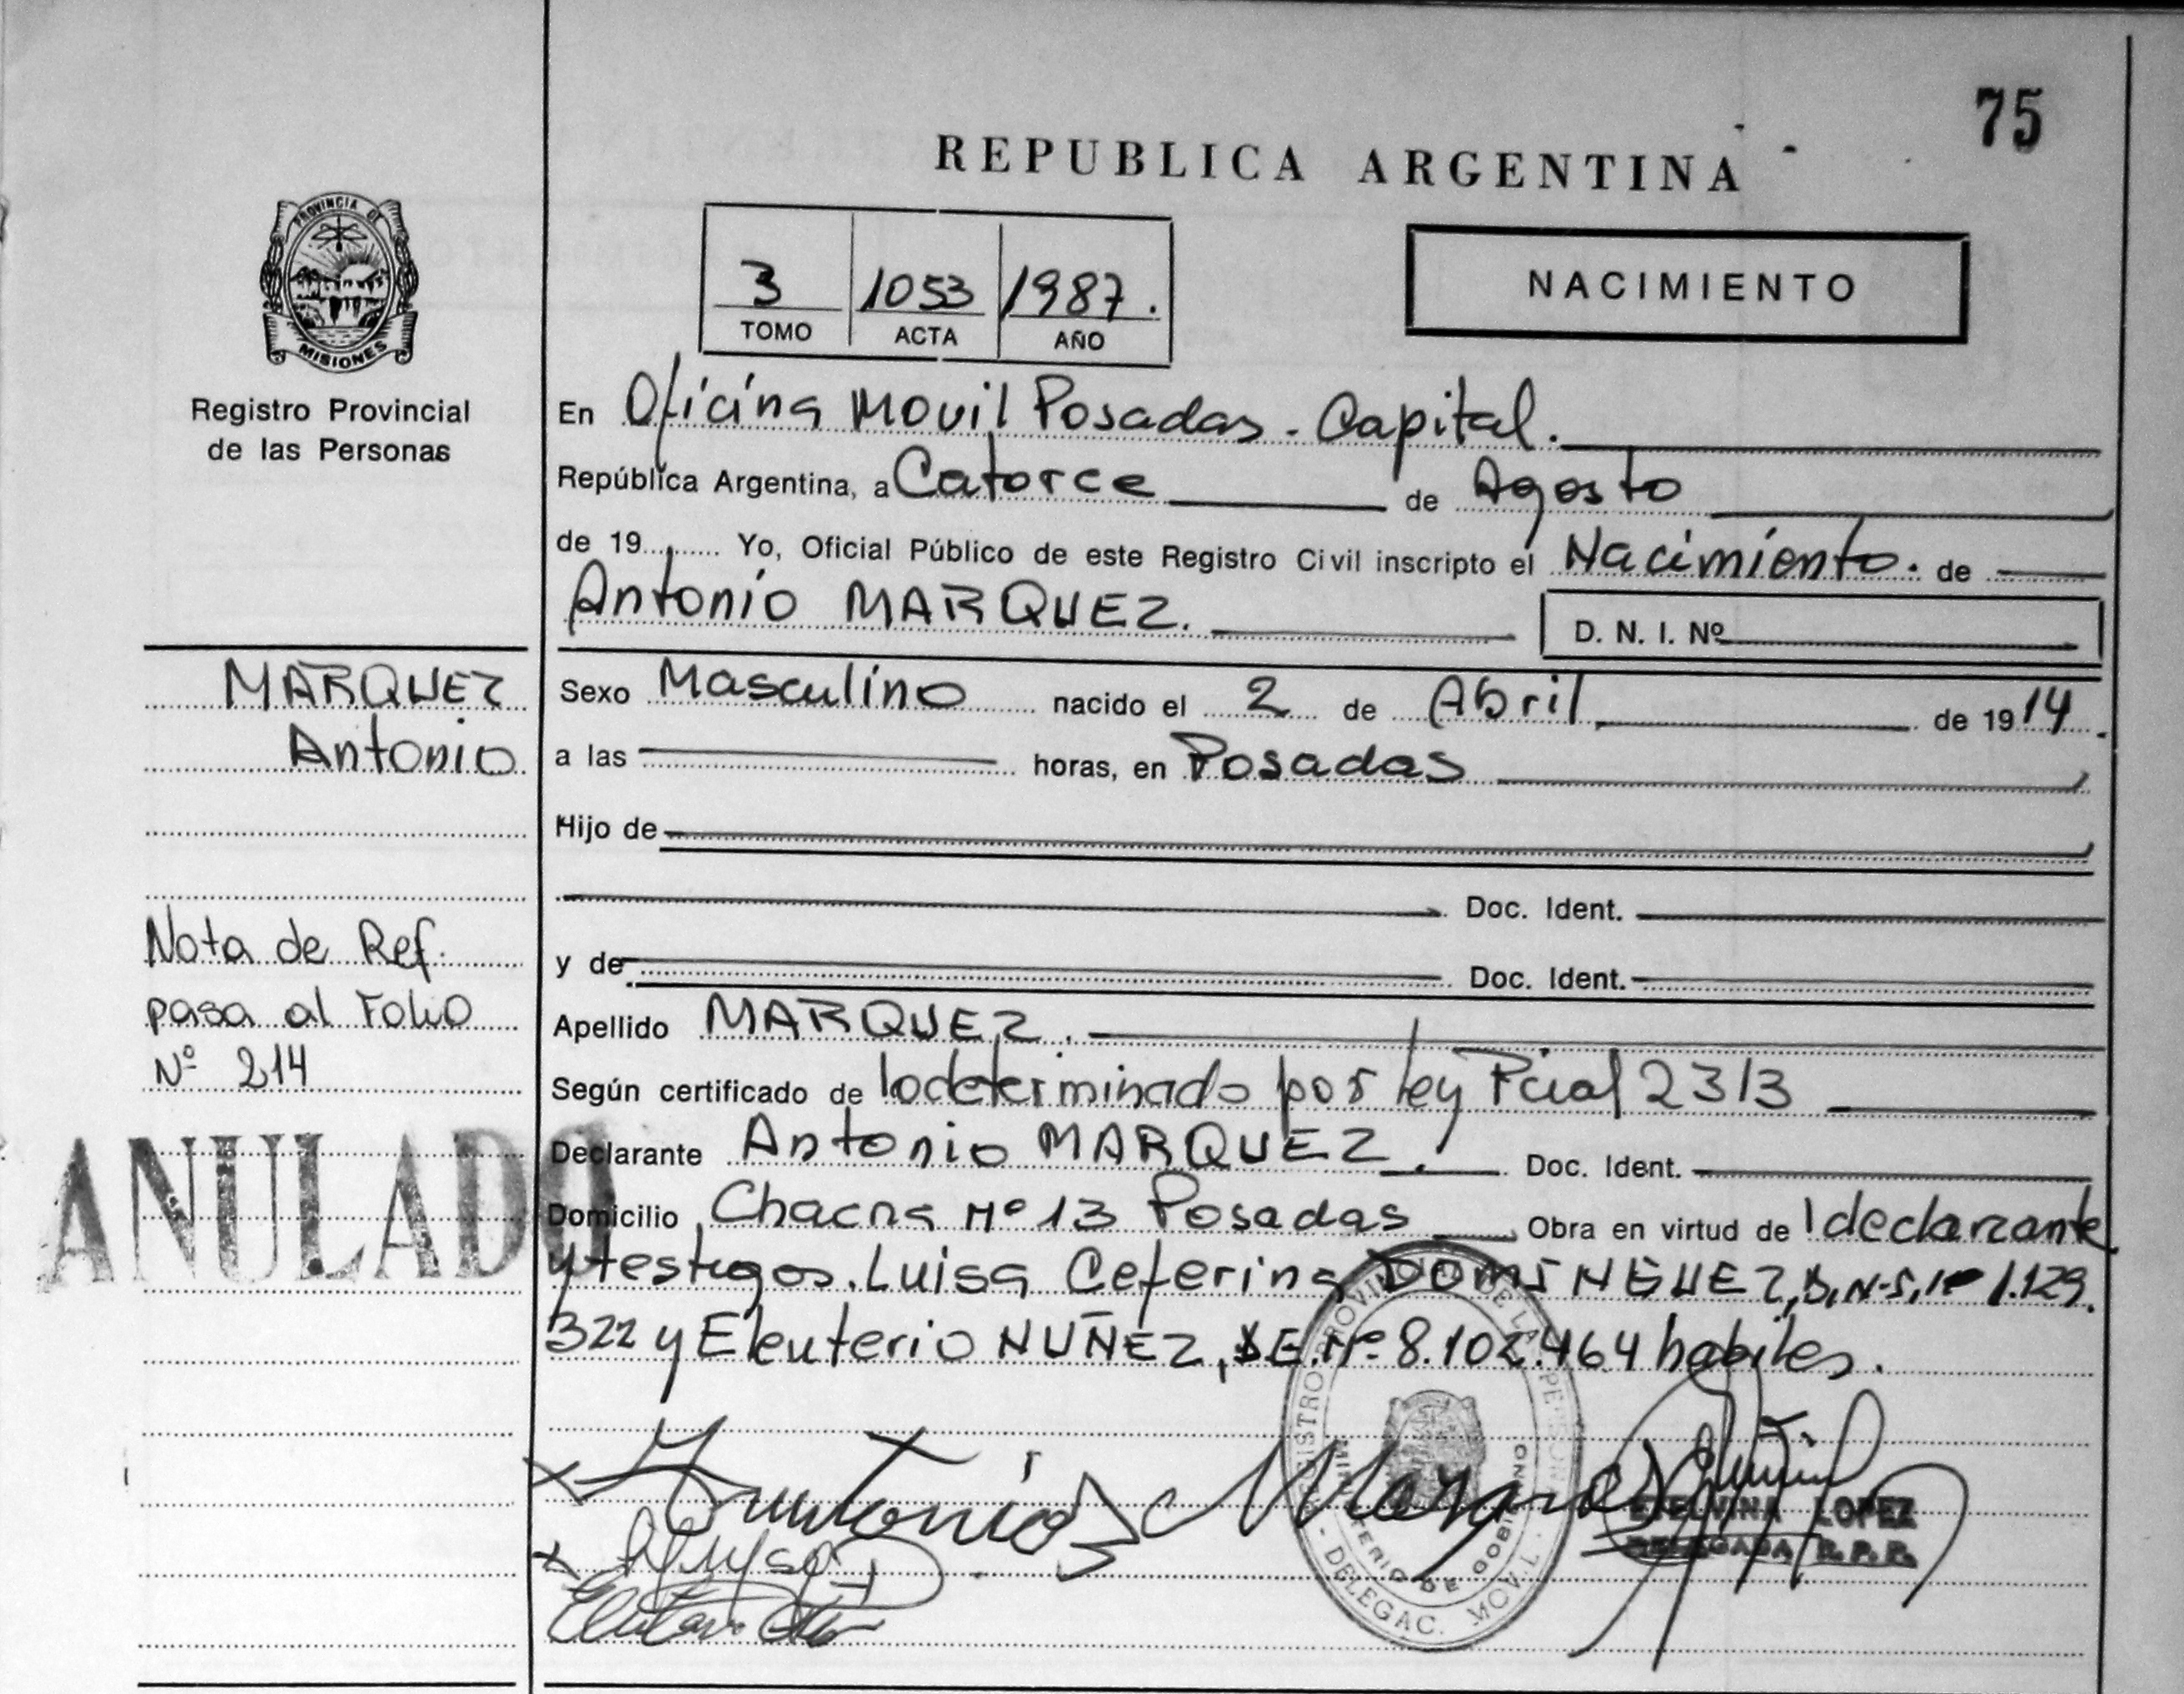 75
REPUBLICA ARGENTINA
PROVINCIA DE
MISIONES
Registro Provincial
de las Personas
3 1053 1987.
TOMO ACTA AÑO
NACIMIENTO
En Oficina Movil Posadas - Capital.
República Argentina, a Catorce de Agosto
de 19 Yo, Oficial Público de este Registro Civil inscripto el Nacimiento. de
Antonio MARQUEZ. D. N. I. Nº
MARQUEZ
Antonio
Sexo Masculino nacido el 2 de Abril de 1914
a las horas, en Posadas
Hijo de
Doc. Ident.
y de Doc. Ident.
Nota de Ref.
pasa al Folio
Nº 214
Apellido MARQUEZ.
Según certificado de lo determinado por ley Pcial 2313
Declarante Antonio MARQUEZ. Doc. Ident.
ANULADO
Domicilio Chacra Nº 13 Posadas Obra en virtud de l declarante
y testigos. Luisa Ceferina DOMINGUEZ, D.N.I. Nº 1.129.
322 y Eleuterio NUÑEZ, Nº 8.102.464 habiles.
Antonio
ETELVINA LOPEZ
DELEGADA R.P.P.
REGISTRO PROVINCIAL DE LAS PERSONAS
MINISTERIO DE GOBIERNO
- DELEGAC. MOVIL -